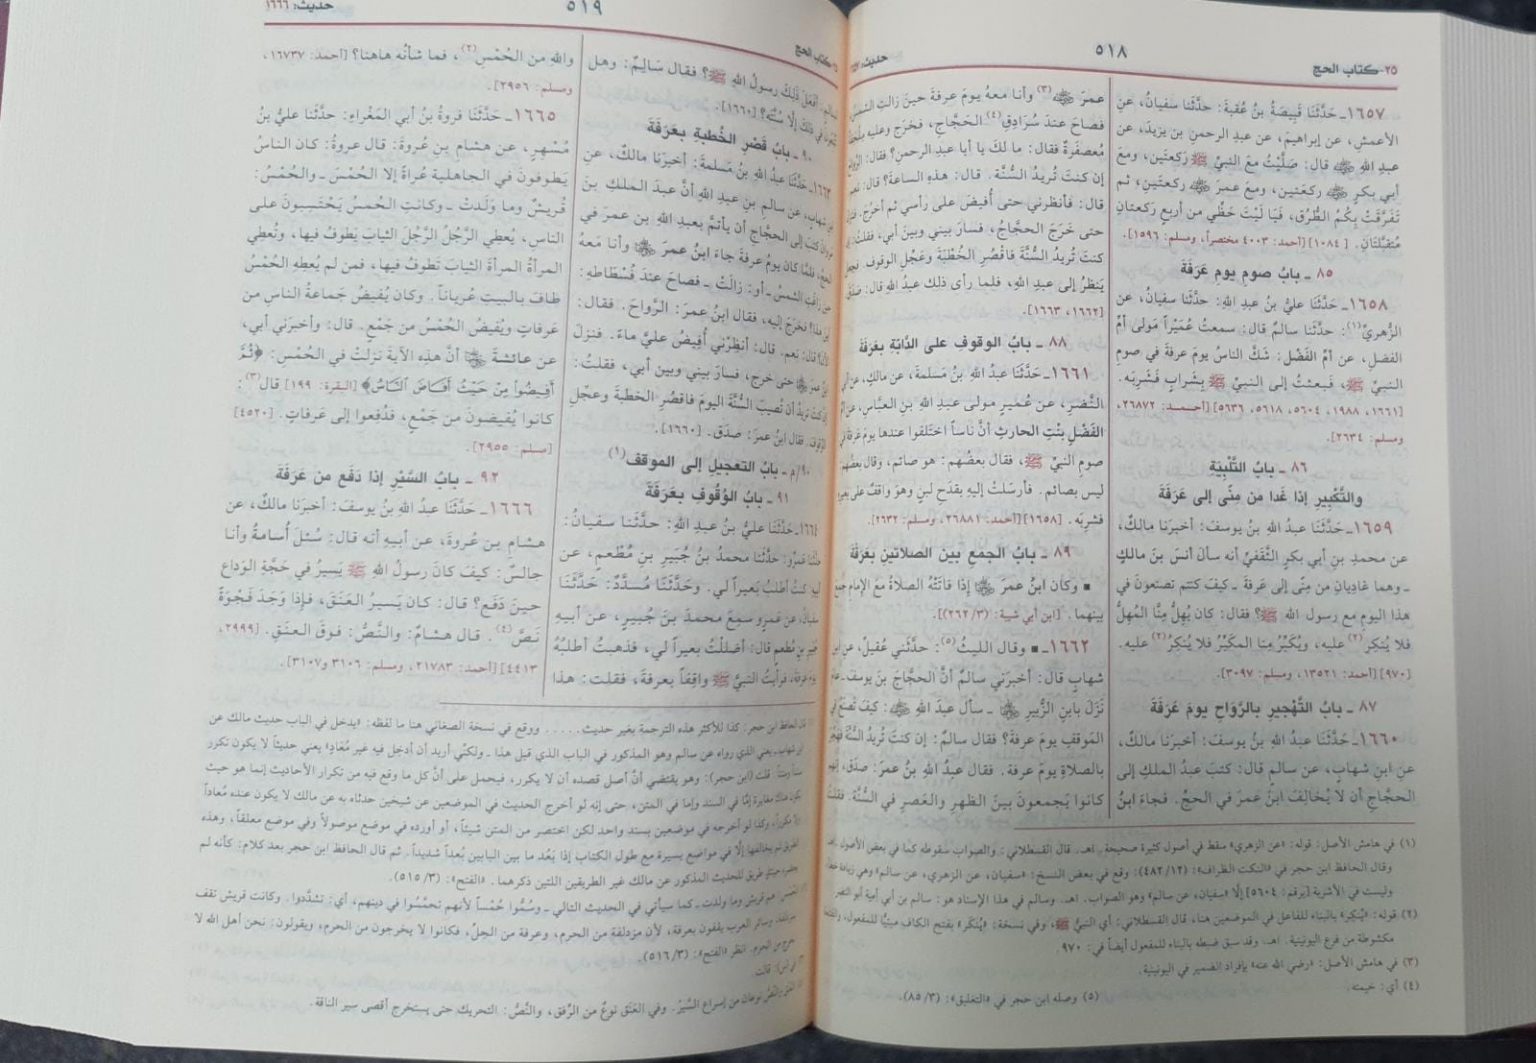 ٢٥-كتاب الحج
٥١٨
حديث:
١٦٥٧ـ حَدَّثَنَا قَبِيصَةُ بنُ عُقبةَ: حدَّثنا سفيانُ، عنِ
الأعمشِ، عن إبراهيمَ، عن عبدِ الرحمنِ بنِ يزيدَ، عن
عبدِ اللهِ ﵁ قال: صَلَّيْتُ معَ النبيِّ ﷺ رَكعتَين، ومعَ
أبي بكرٍ ﵁ ركعتَين، ومعَ عمرَ ﵁ ركعتَين، ثم
تَفَرَّقَتْ بِكُمُ الطُّرُق، فَيَا لَيْتَ حَظِّي من أربعٍ رَكعتانِ
مُتَقبَّلَتَانِ. [١٠٨٤] [أحمد: ٤٠٠٣ مختصراً، ومسلم: ١٥٩٦].
٨٥ ـ بابُ صومِ يومِ عَرَفَةَ
١٦٥٨ـ حَدَّثَنَا عليُّ بنُ عبدِ اللهِ: حدَّثنا سفيانُ، عنِ
الزُّهريِّ(١): حدَّثنا سالمٌ قال: سمعتُ عُمَيْراً مَولى أمِّ
الفضلِ، عن أمِّ الفَضْل: شَكَّ الناسُ يومَ عرفةَ في صومِ
النبيِّ ﷺ، فبعثتُ إلى النبيِّ ﷺ بِشَرابٍ فَشَرِبَه.
[١٦٦١، ١٩٨٨، ٥٦٠٤، ٥٦١٨، ٥٦٣٦] [أحمد: ٢٦٨٧٢،
ومسلم: ٢٦٣٤].
٨٦ ـ بابُ التَّلْبِيَةِ
والتَّكْبِيرِ إذا غَدا من مِنًى إلى عَرَفَةَ
١٦٥٩ـ حَدَّثَنَا عبدُ اللهِ بنُ يوسفَ: أخبرَنا مالكٌ،
عن محمدِ بنِ أبي بكرٍ الثَّقَفيِّ أنه سألَ أنسَ بنَ مالكٍ
ـ وهما غاديانِ من مِنًى إلى عَرفةَ ـ كيفَ كنتم تصنعونَ في
هذا اليومِ مع رسول الله ﷺ؟ فقال: كان يُهِلُّ مِنَّا المُهِلُّ
فلا يُنكِر(٢) عليه، ويُكَبِّرُ مِنا المكَبِّرُ فلا يُنكِرُ(٢) عليه.
[٩٧٠] [أحمد: ١٣٥٢١، ومسلم: ٣٠٩٧].
٨٧ ـ بابُ التَّهْجِيرِ بالرَّوَاحِ يومَ عَرَفَةَ
١٦٦٠ـ حَدَّثَنَا عبدُ اللهِ بنُ يوسفَ: أخبرَنا مالكٌ،
عنِ ابنِ شهابٍ، عن سالمٍ قال: كتبَ عبدُ الملكِ إلى
الحجَّاجِ أن لا يُخالِفَ ابنَ عمرَ في الحجِّ. فجاءَ ابنُ
عمرَ ﵁(٣) وأنا معهُ يومَ عرفةَ حينَ زالتِ الشمسُ
فصاحَ عندَ سُرَادِقِ(٤) الحَجَّاجِ، فخَرَج وعليه مِلْحَفةٌ
مُعصفَرةٌ فقال: ما لكَ يا أبا عبدِ الرحمنِ؟ فقال: الرَّوَاحَ
إن كنتَ تُريدُ السُّنَّة. قال: هذهِ الساعةَ؟ قال: نعم
قال: فأنظرني حتى أُفيضَ على رأسي ثم أخرُج. فنزلَ
حتى خَرَجَ الحجَّاجُ، فسارَ بيني وبينَ أبي، فقلتُ: إن
كنتَ تُريدُ السُّنَّةَ فاقْصُرِ الخُطْبَةَ وعَجِّلِ الوقوف. فجعلَ
يَنظرُ إلى عبدِ اللهِ، فلما رأى ذلك عبدُ الله قال: صَدَقَ
[١٦٦٢، ١٦٦٣].
٨٨ ـ بابُ الوقوفِ على الدَّابَّةِ بعَرَفةَ
١٦٦١ـ حَدَّثَنَا عبدُ اللهِ بنُ مَسلمةَ، عن مالكٍ، عن أبي
النَّضرِ، عن عُميرٍ مولى عبدِ اللهِ بنِ العبَّاسِ، عن أمِّ
الفَضْلِ بنْتِ الحارثِ أنَّ ناساً اختَلفوا عندها يومَ عَرفةَ في
صومِ النبيِّ ﷺ، فقال بعضُهم: هو صائم، وقال بعضُهم:
ليس بصائم. فأرسَلتْ إليه بقدَحِ لبنٍ وهوَ واقفٌ على بعيرِهِ
فشرِبَه. [١٦٥٨] [أحمد: ٢٦٨٨١، ومسلم: ٢٦٣٢].
٨٩ ـ بابُ الجَمعِ بينَ الصلاتينِ بعَرَفَةَ
▪ وكان ابنُ عمرَ ﵁ إذا فاتَتْهُ الصلاةُ معَ الإمامِ جمعَ
بينهما. [ابن أبي شيبة: (٣/ ٢٦٢)].
١٦٦٢ـ ▪ وقال الليثُ(٥): حدَّثَني عُقيلٌ، عن ابنِ
شهابٍ قال: أخبرَني سالمٌ أنَّ الحجَّاجَ بنَ يوسفَ ـ عامَ
نَزَلَ بابنِ الزُّبيرِ ﵁ ـ سألَ عبدَ اللهِ ﵁: كيفَ تَصْنَعُ في
المَوقفِ يومَ عرفةَ؟ فقال سالمٌ: إن كنتَ تُريدُ السُّنَّةَ فهَجِّرْ
بالصلاةِ يومَ عرفة. فقال عبدُ اللهِ بنُ عمرَ: صدَق، إنهم
كانوا يَجمعونَ بينَ الظهرِ والعَصرِ في السُّنَّة. فقلتُ
(١) في هامش الأصل: قوله: «عن الزهري» سقط في أصول كثيرة صحيحة. اهـ. قال القسطلاني: والصواب سقوطه كما في بعض الأصول. اهـ.
وقال الحافظ ابن حجر في «النكت الظراف»: (١٢/ ٤٨٢): وقع في بعض النسخ: «سفيان، عن الزهري، عن سالم» وهي زيادة خطأ
وليست في الأشربة [برقم: ٥٦٠٤] إلا «سفيان، عن سالم» وهو الصواب. اهـ. وسالم في هذا الإسناد هو: سالم بن أبي أمية أبو النضر.
(٢) قوله: «يُنكِر» بالبناء للفاعل في الموضعين هنا، قال القسطلاني: أي النبيُّ ﷺ، وفي نسخة: «يُنكَر» بفتح الكاف مبنيًّا للمفعول،
مكشوطة من فرع اليونينية. اهـ. وقد سبق ضبطه بالبناء للمفعول أيضاً في: ٩٧٠.
(٣) في هامش الأصل: «رضي الله عنه» بإفراد الضمير في اليونينية.
(٤) أي: خيمته.
(٥) وصله ابن حجر في «التغليق»: (٣/ ٨٥).
كتاب الحج
٥١٩
حديث: ١٦٦٦
سالمٍ: أفَعَلَ ذلِكَ رسولُ اللهِ ﷺ؟ فقال سَالِمٌ: وهل
في ذلك إلَّا سُنَّتَه؟ [١٦٦٠].
٩٠ ـ بابُ قَصْرِ الخُطبةِ بعَرَفَةَ
١٦٦٣ـ حَدَّثَنَا عبدُ اللهِ بنُ مَسلمةَ: أخبرَنا مالكٌ، عنِ
ابنِ شهاب، عن سالمِ بنِ عبدِ اللهِ أنَّ عبدَ الملكِ بنَ
مروانَ كتَبَ إلى الحجَّاجِ أن يأتمَّ بعبدِ اللهِ بنِ عمرَ في
الحجِّ، فلمَّا كان يومُ عرفةَ جاءَ ابنُ عمرَ ﵁ وأنا معَهُ
حينَ زاغَتِ الشمسُ ـ أو: زالَتْ ـ فصاحَ عندَ فُسْطاطِهِ:
أين هذا؟ فخَرَجَ إليه، فقال ابنُ عمرَ: الرَّواحَ. فقال:
الآنَ؟ قال: نعم. قال: أنظِرْني أُفيضُ عليَّ ماءً. فنزلَ
ابنُ عمرَ ﵁ حتى خرج، فسارَ بيني وبين أبي، فقلتُ:
إن كنتَ تريدُ أن تُصيبَ السُّنَّةَ اليومَ فاقصُرِ الخطبةَ وعجِّلِ
الوقوف. فقال ابنُ عمرَ: صدَق. [١٦٦٠].
٩٠/م ـ بابُ التعجيلِ إلى الموقفِ(١)
٩١ ـ بابُ الوُقُوفِ بعَرَفَةَ
١٦٦٤ـ حَدَّثَنَا عليُّ بنُ عبدِ اللهِ: حدَّثَنا سفيانُ:
حدَّثَنا عَمرٌو: حدَّثنا محمدُ بنُ جُبَيرِ بنِ مُطْعِمٍ، عن
أبيهِ: كنتُ أطلبُ بَعيراً لي. وحَدَّثَنَا مُسدَّدٌ: حَدَّثَنَا
سفيانُ، عن عَمرٍو سَمِعَ محمدَ بنَ جُبيرٍ، عن أبيهِ
جُبيرِ بنِ مُطعِمٍ قال: أضلَلْتُ بعيراً لي، فذهبتُ أطلُبُهُ
يومَ عَرفةَ، فرأيتُ النبيَّ ﷺ واقِفاً بعرفةَ، فقلت: هذا
واللهِ من الحُمْسِ(٢)، فما شأنُه هاهنا؟ [أحمد: ١٦٧٣٧،
ومسلم: ٢٩٥٦].
١٦٦٥ـ حَدَّثَنَا فَروةُ بنُ أبي المَغْراءِ: حدَّثنا عليُّ بنُ
مُسْهِرٍ، عن هشامِ بنِ عُروةَ: قال عروةُ: كان الناسُ
يَطوفونَ في الجاهليةِ عُراةً إلا الحُمْسَ ـ والحُمْسُ:
قُريشٌ وما وَلَدتْ ـ وكانتِ الحُمسُ يَحْتَسِبونَ على
الناس، يُعطي الرَّجُلُ الرَّجُلَ الثيابَ يَطوفُ فيها، وتُعطي
المرأةُ المرأةَ الثيابَ تَطوفُ فيها، فمن لم يُعطهِ الحُمْسُ
طافَ بالبيتِ عُرياناً. وكان يُفيضُ جَماعةُ الناسِ من
عَرفاتٍ ويُفيضُ الحُمْسُ من جَمْعٍ. قال: وأخبرَني أبي،
عن عائشةَ ﵂ أنَّ هذهِ الآيةَ نزلتْ في الحُمْسِ: ﴿ثُمَّ
أَفِيضُوا۟ مِنْ حَيْثُ أَفَاضَ النَّاسُ﴾ [البقرة: ١٩٩] قال(٣):
كانوا يُفيضونَ من جَمْعٍ، فدُفِعوا إلى عَرفاتٍ. [٤٥٢٠]
[مسلم: ٢٩٥٥].
٩٢ ـ بابُ السَّيْرِ إذا دَفَع من عَرَفَةَ
١٦٦٦ـ حَدَّثَنَا عبدُ اللهِ بنُ يوسفَ: أخبرَنا مالكٌ، عن
هشامِ بنِ عُروةَ، عن أبيهِ أنه قال: سُئلَ أسامةُ وأنا
جالسٌ: كيفَ كانَ رسولُ اللهِ ﷺ يَسيرُ في حَجَّةِ الوَداعِ
حينَ دَفَع؟ قال: كان يَسيرُ العَنَقَ، فإذا وَجَدَ فَجْوَةً
نَصَّ(٤). قال هشامٌ: والنَّصُّ: فوقَ العنَقِ. [٢٩٩٩،
٤٤١٣] [أحمد: ٢١٧٨٣، ومسلم: ٣١٠٦ و٣١٠٧].
قال الحافظ ابن حجر: كذا للأكثر هذه الترجمة بغير حديث...... ووقع في نسخة الصغاني هنا ما لفظه: «يدخل في الباب حديث مالك عن
ابن شهاب» يعني الذي رواه عن سالم وهو المذكور في الباب الذي قبل هذا ـ ولكنِّي أريد أن أدخل فيه غير مُعَادٍ» يعني حديثاً لا يكون تكرر
سنداً ومتناً. قلت (ابن حجر): وهو يقتضي أنَّ أصل قصده أن لا يكرر، فيحمل على أنَّ كل ما وقع فيه من تكرار الأحاديث إنما هو حيث
يكون هناك مغايرة إمَّا في السند وإما في المتن، حتى إنه لو أخرج الحديث في الموضعين عن شيخين حدثاه به عن مالك لا يكون عنده مُعاداً
ولا مكرراً، وكذا لو أخرجه في موضعين بسند واحد لكن اختصر من المتن شيئاً، أو أورده في موضع موصولاً وفي موضع معلقاً، وهذه
الطريق لم يخالفها إلَّا في مواضع يسيرة مع طول الكتاب إذا بَعُد ما بين البابين بُعداً شديداً. ثم قال الحافظ ابن حجر بعد كلام: كأنه لم
حينئذٍ طريق للحديث المذكور عن مالك غير الطريقين اللتين ذكرهما. «الفتح»: (٣/ ٥١٥).
الحمس: هم قريش وما ولدت ـ كما سيأتي في الحديث التالي ـ وسُمُّوا حُمْساً لأنهم تحمَّسُوا في دينهم، أي: تشدَّدوا. وكانت قريش تقف
بمزدلفة، وسائر العرب يقفون بعرفة، لأن مزدلفة من الحرم، وعرفة من الحِلّ، فكانوا لا يخرجون من الحرم، ويقولون: نحن أهل الله لا
نخرج من الحرم. انظر «الفتح»: (٣/ ٥١٦).
قالت.
العَنَق والنَّصُّ نوعان من إسراع السَّيْرِ. وفي العَنَق نوعٌ من الرِّفق، والنَّصُّ: التحريك حتى يستخرج أقصى سير الناقة.